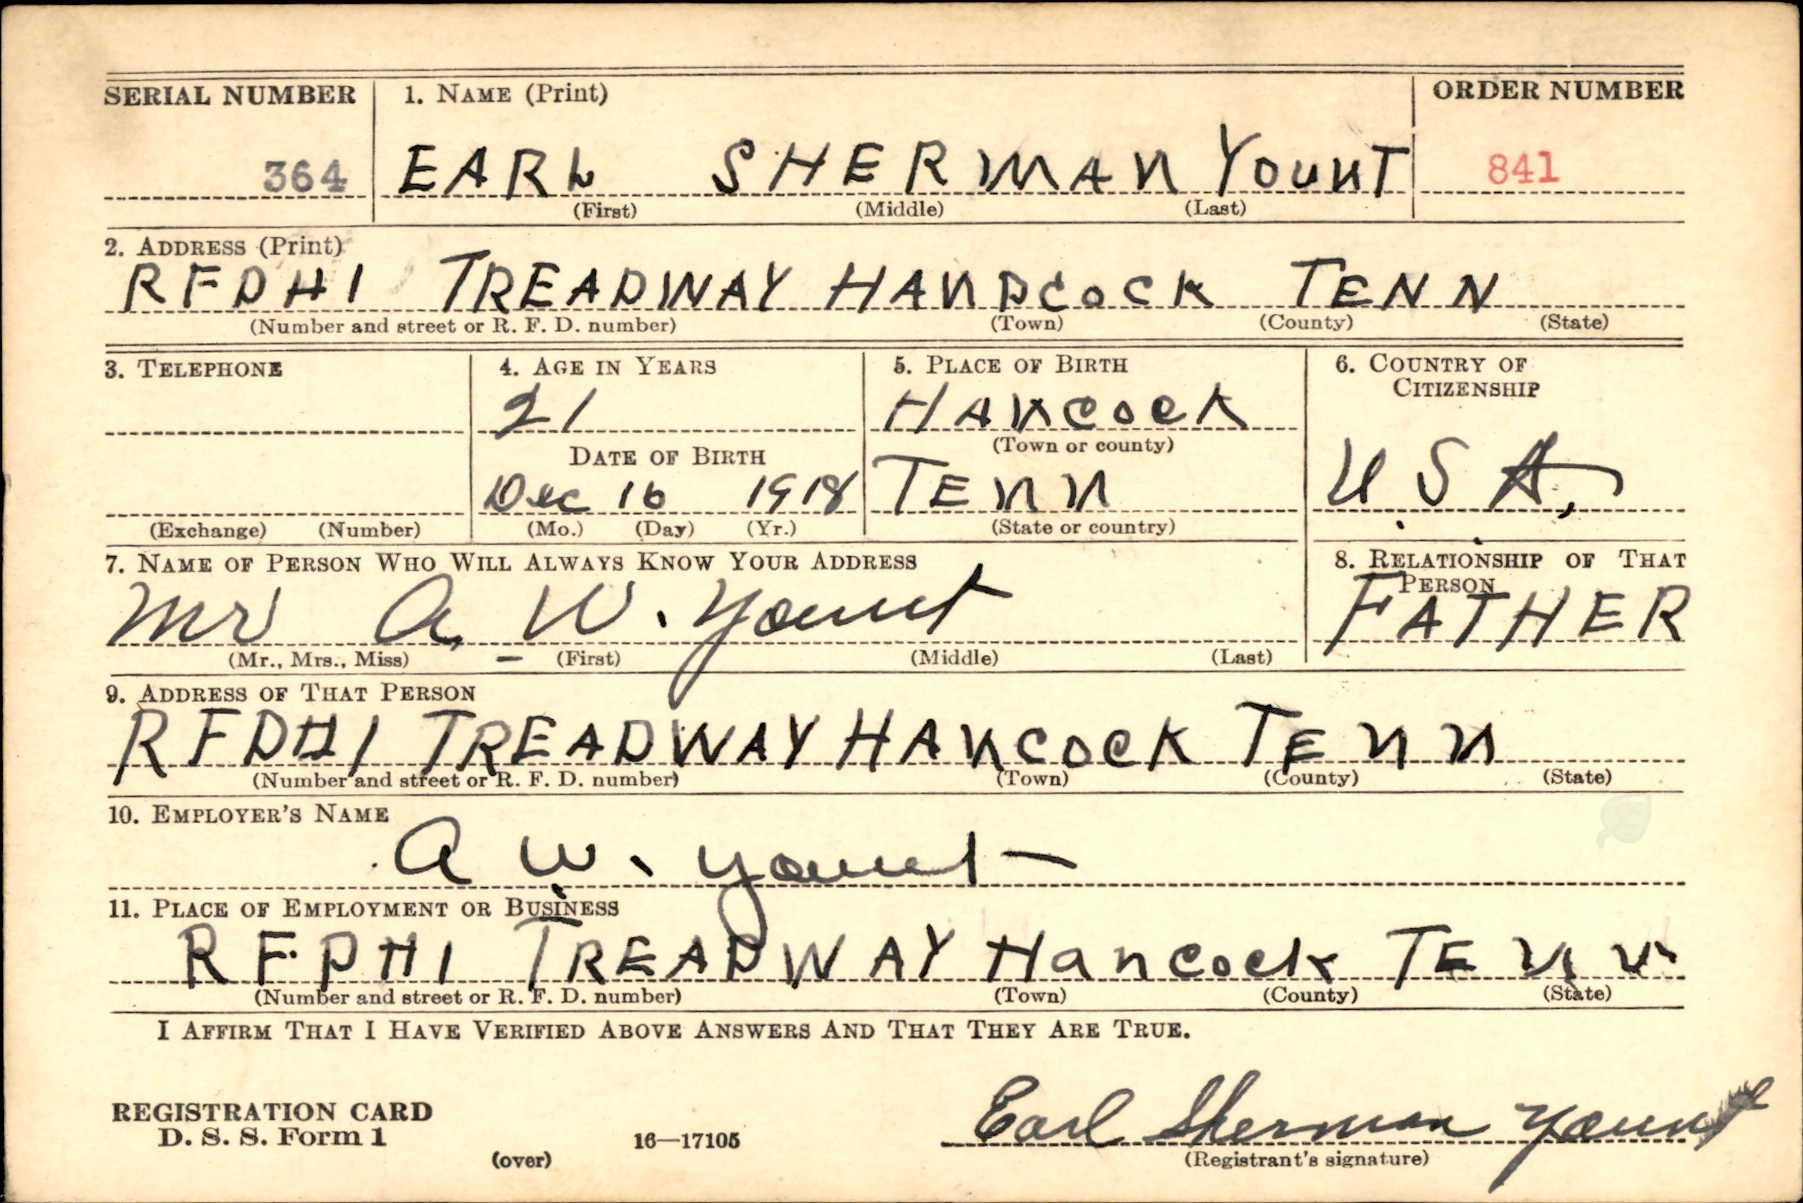 SERIAL NUMBER 1. NAME (Print) ORDER NUMBER
364 EARL SHERMAN YOUNT 841
(First) (Middle) (Last)
2. ADDRESS (Print)
RFD#1 TREADWAY HANDCOCK TENN
(Number and street or R. F. D. number) (Town) (County) (State)
3. TELEPHONE 4. AGE IN YEARS 5. PLACE OF BIRTH 6. COUNTRY OF
CITIZENSHIP
21 HANCOCK
DATE OF BIRTH (Town or county)
Dec 16 1918 TENN U.S.A.
(Exchange) (Number) (Mo.) (Day) (Yr.) (State or country)
7. NAME OF PERSON WHO WILL ALWAYS KNOW YOUR ADDRESS 8. RELATIONSHIP OF THAT
PERSON
Mr A. W. Yount FATHER
(Mr., Mrs., Miss) (First) (Middle) (Last)
9. ADDRESS OF THAT PERSON
RFD#1 TREADWAY HANCOCK TENN
(Number and street or R. F. D. number) (Town) (County) (State)
10. EMPLOYER'S NAME
A W. Yount
11. PLACE OF EMPLOYMENT OR BUSINESS
RFD#1 TREADWAY Hancock TENN
(Number and street or R. F. D. number) (Town) (County) (State)
I AFFIRM THAT I HAVE VERIFIED ABOVE ANSWERS AND THAT THEY ARE TRUE.
REGISTRATION CARD
D. S. S. Form 1 16—17105 Earl Sherman Yount
(over) (Registrant's signature)